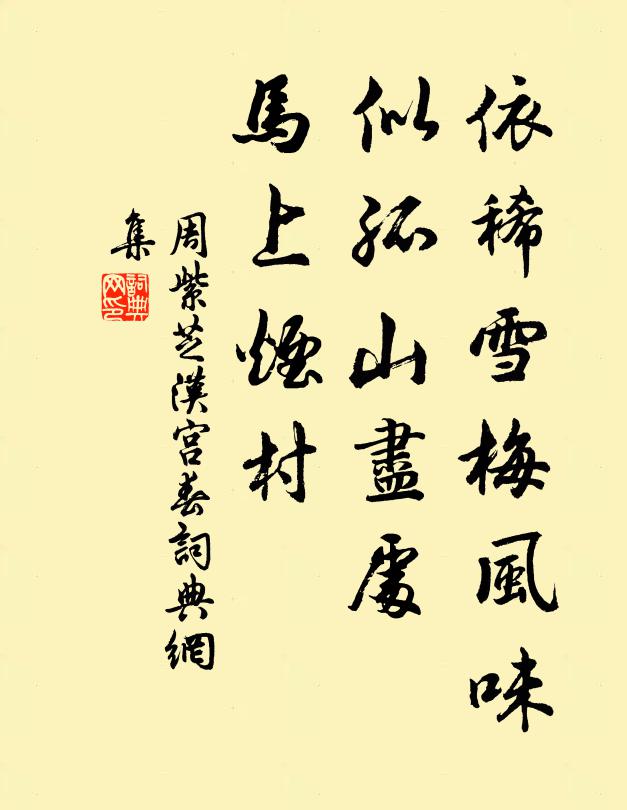 依稀雪梅風味
似孤山盡處
馬上煙村
周紫芝漢宮春詞典網
集
詞典
网印